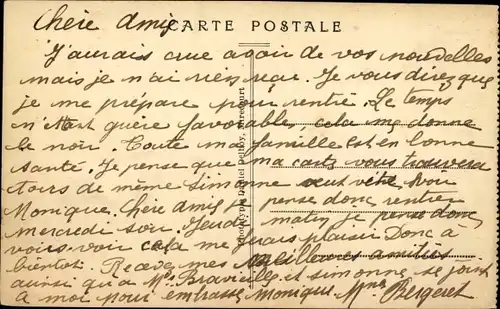 Chère Amie
CARTE POSTALE
J'aurais crue avoir de vos nouvelles
mais je n'ai rien reçue. Je vous direz que
je me prépare pour rentré. Le temps
n'étant guère favorable, cela me donne
le noir. Toute ma famille est en bonne
santé. Je pense que ma carte vous trouvera
tous de même Simonne veut vite voir
Monique. Chère Amie je pense donc rentrer
mercredi soir. Jeudi matin je pense donc
vous voir cela me feras plaisir Donc à
bientot. Recevez mes meilleures amitiés
ainsi qu'a Mr et simonne se joint
à moi pour embrasser Monique. Mme Bergeret
Phototypie Daniel Delboy, Mirecourt